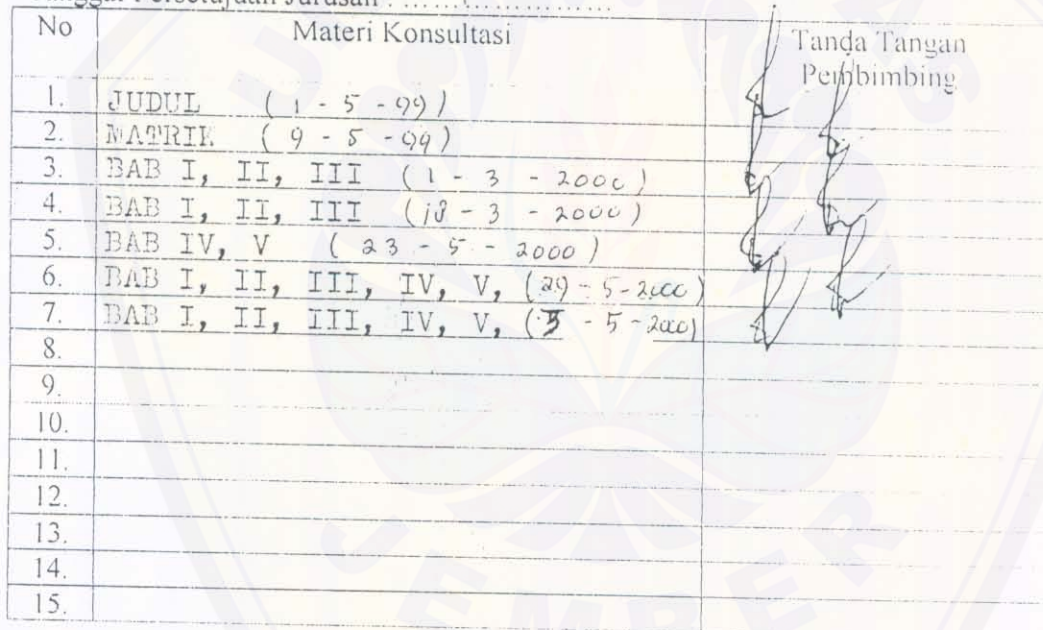 Tanggal Persetujuan Jurusan : ........................
No Materi Konsultasi Tanda Tangan
Pembimbing
1. JUDUL ( 1 - 5 - 99 )
2. MATRIK ( 9 - 5 - 99 )
3. BAB I, II, III ( 1 - 3 - 2000 )
4. BAB I, II, III ( 18 - 3 - 2000 )
5. BAB IV, V ( 23 - 5 - 2000 )
6. BAB I, II, III, IV, V, ( 29 - 5 - 2000 )
7. BAB I, II, III, IV, V, ( - 5 - 2000 )
8.
9.
10.
11.
12.
13.
14.
15.
JEMBER